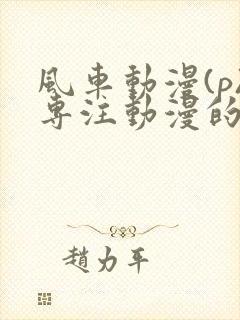 風車動漫(p
專注動漫的
趙力平